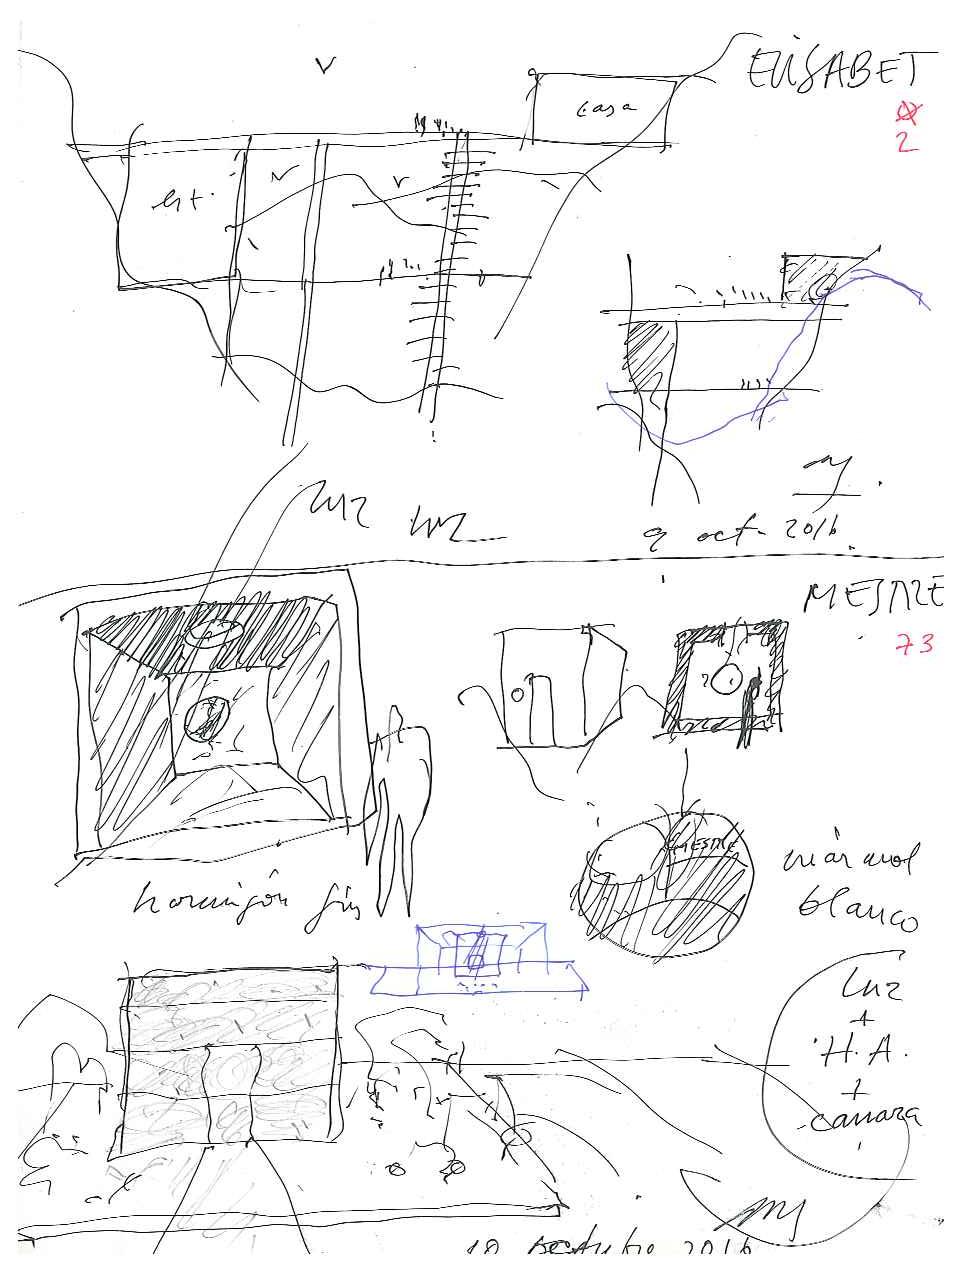 ELISABET
2
casa
est.
9 oct. 2016
luz
luz
MESTRE
73
MESTRE
hormigón gris
mármol
blanco
luz
+
H. A.
+
cámara
10 octubre 2016